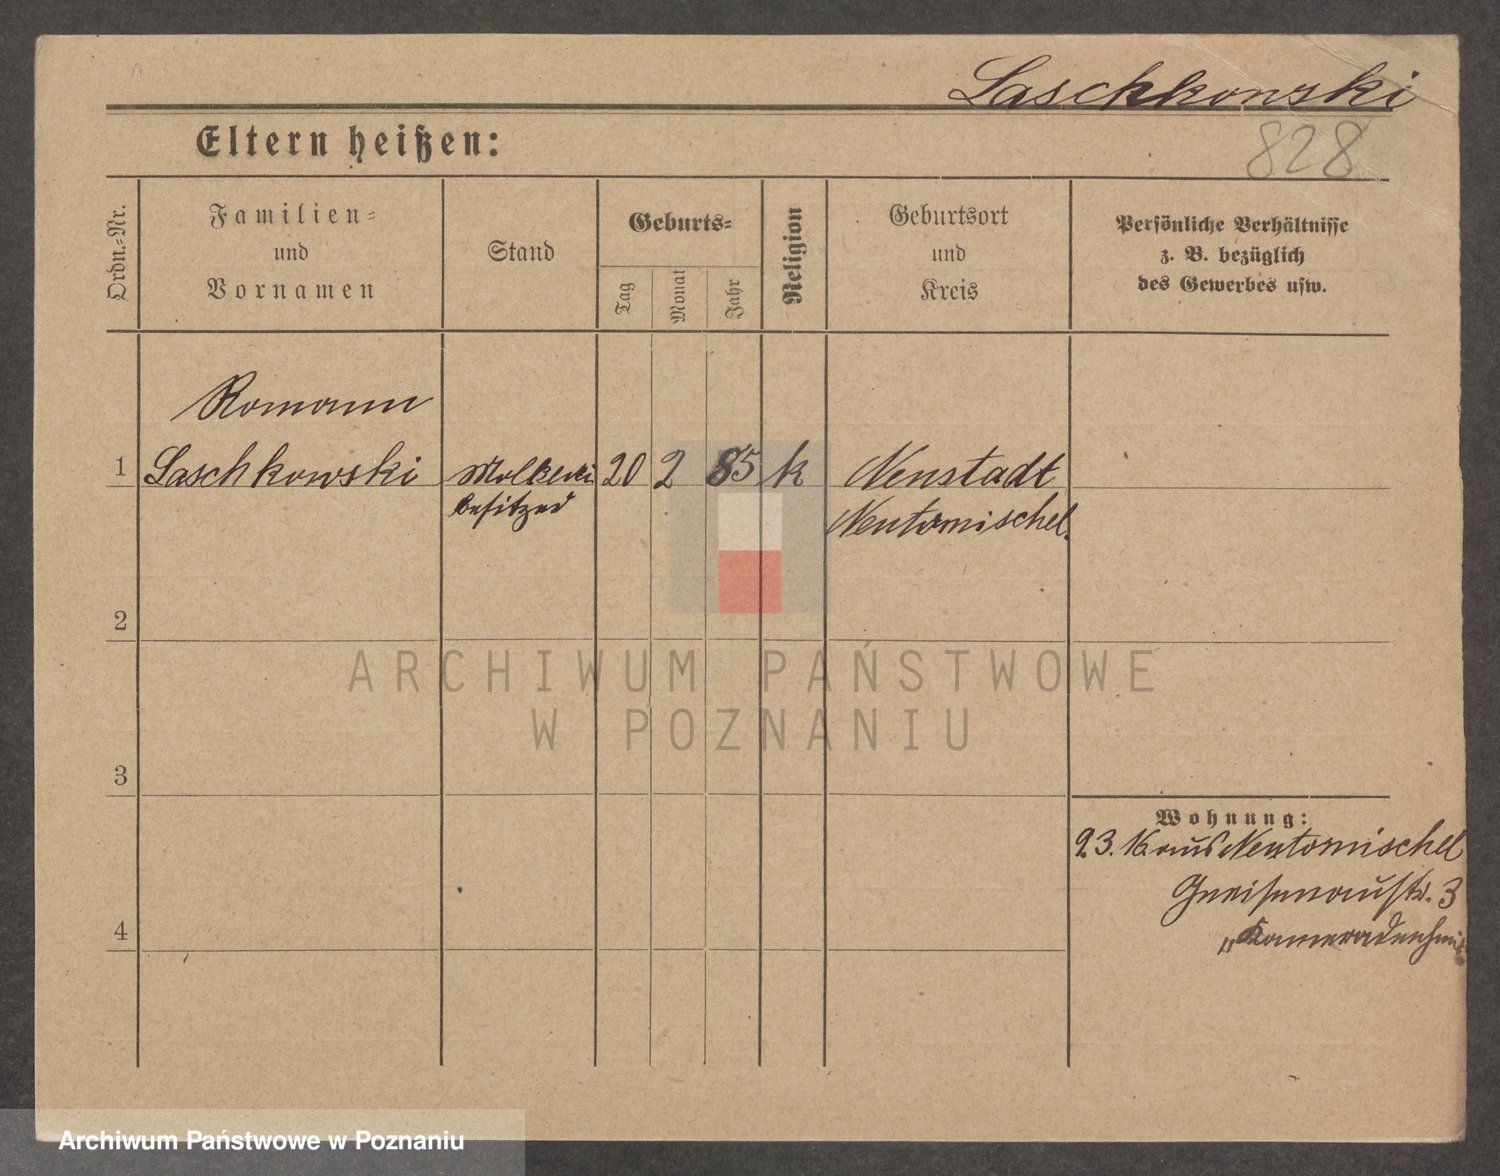 Laschkowski
828
Eltern heißen:
Ordn.-Nr.
Familien-
und
Vornamen
Stand
Geburts-
Tag
Monat
Jahr
Religion
Geburtsort
und
Kreis
Persönliche Verhältnisse
z. B. bezüglich
des Gewerbes usw.
Romann
1 Laschkowski Molkerei 20 2 85 k Neustadt
besitzer Neutomischel.
2
ARCHIWUM PAŃSTWOWE
W POZNANIU
3
Wohnung:
23. Neutomischel
Gneisenaustr. 3
4
Archiwum Państwowe w Poznaniu